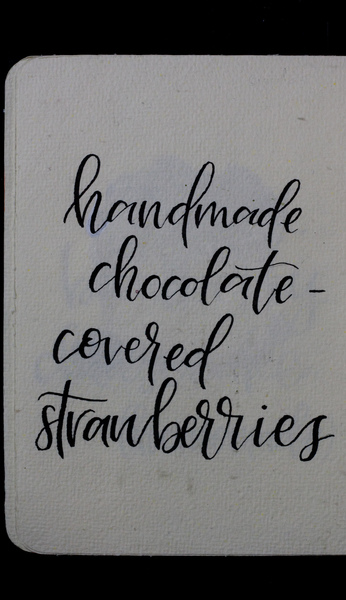 handmade
chocolate-
covered
strawberries